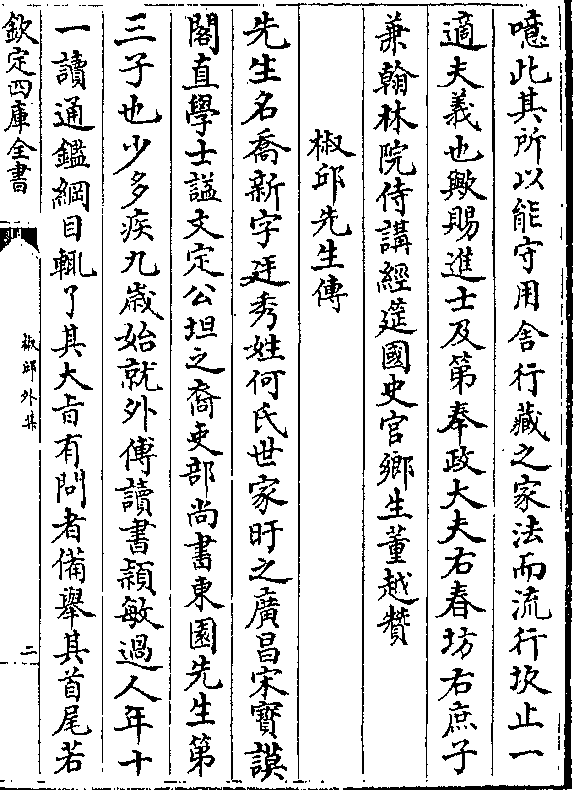 噫此其所以能守用舍行藏之家法而流行坎止一
適夫義也歟賜進士及第奉政大夫右春坊右庶子
兼翰林院侍講經筵國史官鄉生董越贊
椒邱先生傳
先生名喬新字廷秀姓何氏世家盱之廣昌宋寳謨
閣直學士謚文定公坦之裔吏部尚書東園先生第
三子也少多疾九歳始就外傅讀書頴敏過人年十
一讀通鑑綱目輒了其大㫖有問者備舉其首尾若
欽定四庫全書
椒邱外集
二